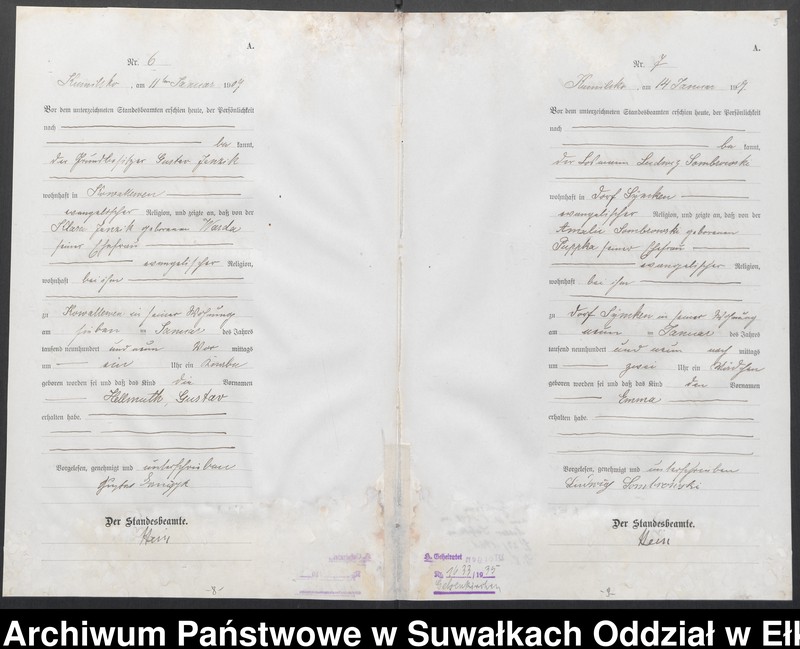 A.
Nr. 6
Kumilsko, am 11ten Januar 1909
Vor dem unterzeichneten Standesbeamten erschien heute, der Persönlichkeit
nach
be kannt,
der Grundbesitzer Gustav Jenzik
wohnhaft in Kowallewen
evangelischer Religion, und zeigte an, daß von der
Klara Jenzik geborenen Warda
seiner Ehefrau
evangelischer Religion,
wohnhaft bei ihm
zu Kowallewen in seiner Wohnung
am sieben Januar des Jahres
tausend neunhundert und neun Vor mittags
um ein Uhr ein Knabe
geboren worden sei und daß das Kind die Vornamen
Hellmuth, Gustav
erhalten habe.
Vorgelesen, genehmigt und unterschrieben
Gustav
Der Standesbeamte.
Hein
-8-
5
A.
Nr. 7
Kumilsko, am 14 Januar 1909.
Vor dem unterzeichneten Standesbeamten erschien heute, der Persönlichkeit
nach
be kannt,
der Losmann Ludwig Sombrowski
wohnhaft in Dorf Symken
evangelischer Religion, und zeigte an, daß von der
Amalie Sombrowski geborenen
Puppka seiner Ehefrau
evangelischer Religion,
wohnhaft bei ihm
zu Dorf Symken in seiner Wohnung
am neun Januar des Jahres
tausend neunhundert und neun nach mittags
um zwei Uhr ein Mädchen
geboren worden sei und daß das Kind den Vornamen
Emma
erhalten habe.
Vorgelesen, genehmigt und unterschrieben
Ludwig Sombrowski
Der Standesbeamte.
Hein
-9-
Archiwum Państwowe w Suwałkach Oddział w Ełk